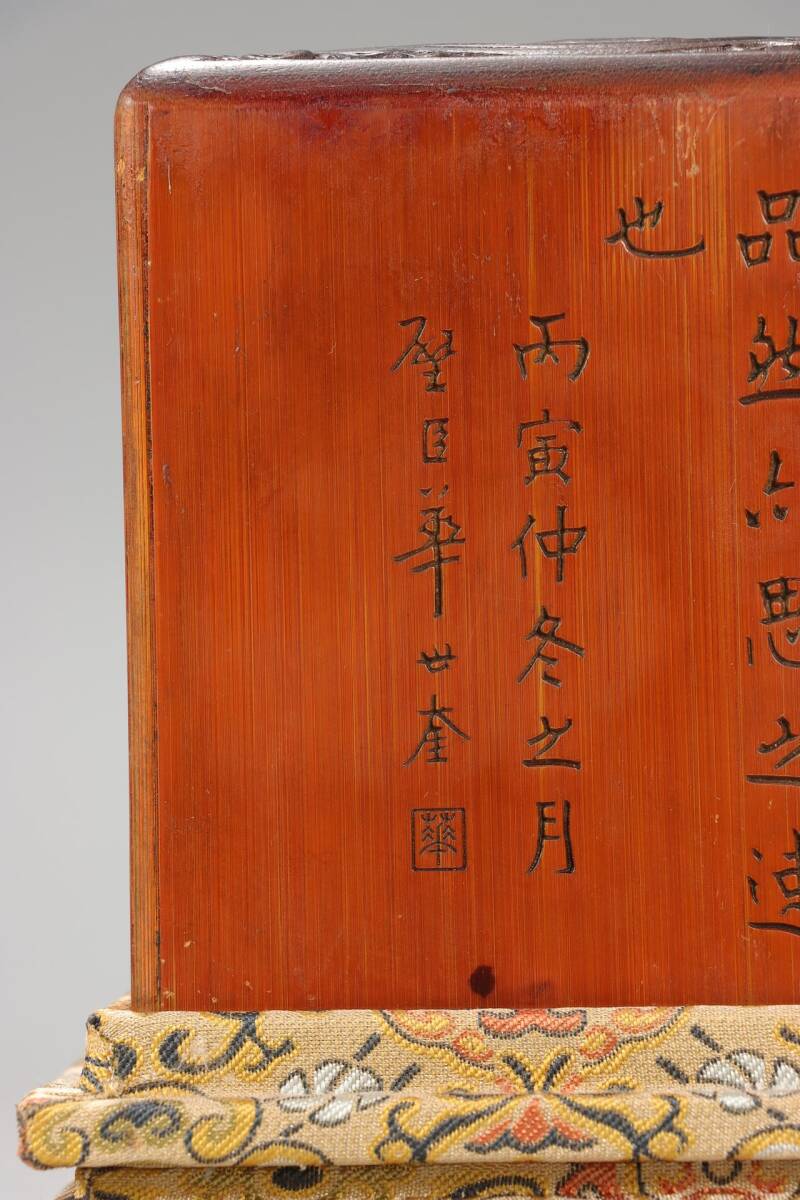 品然亦思之
也
丙寅仲冬之月
璧臣華世奎
華